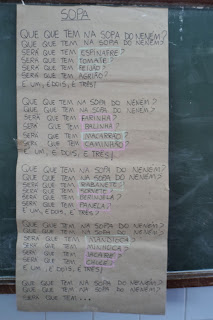 SOPA
QUE QUE TEM NA SOPA DO NENÉM?
QUE QUE TEM NA SOPA DO NENÉM?
SERÁ QUE TEM ESPINAFRE?
SERÁ QUE TEM TOMATE?
SERÁ QUE TEM FEIJÃO?
SERÁ QUE TEM AGRIÃO?
É UM, É DOIS, É TRÊS!
QUE QUE TEM NA SOPA DO NENÉM?
QUE QUE TEM NA SOPA DO NENÉM?
SERÁ QUE TEM FARINHA?
SERÁ QUE TEM BALINHA?
SERÁ QUE TEM MACARRÃO?
SERÁ QUE TEM CAMINHÃO?
É UM, É DOIS, É TRÊS!
QUE QUE TEM NA SOPA DO NENÉM?
QUE QUE TEM NA SOPA DO NENÉM?
SERÁ QUE TEM RABANETE?
SERÁ QUE TEM SORVETE?
SERÁ QUE TEM BERINJELA?
SERÁ QUE TEM PANELA?
É UM, É DOIS, É TRÊS!
QUE QUE TEM NA SOPA DO NENÉM?
QUE QUE TEM NA SOPA DO NENÉM?
SERÁ QUE TEM MANDIOCA?
SERÁ QUE TEM MINHOCA?
SERÁ QUE TEM JACARÉ?
SERÁ QUE TEM CHULÉ?
É UM, É DOIS, É TRÊS!
QUE QUE TEM NA SOPA DO NENÉM?
QUE QUE TEM NA SOPA DO NENÉM?
SERÁ QUE TEM ...